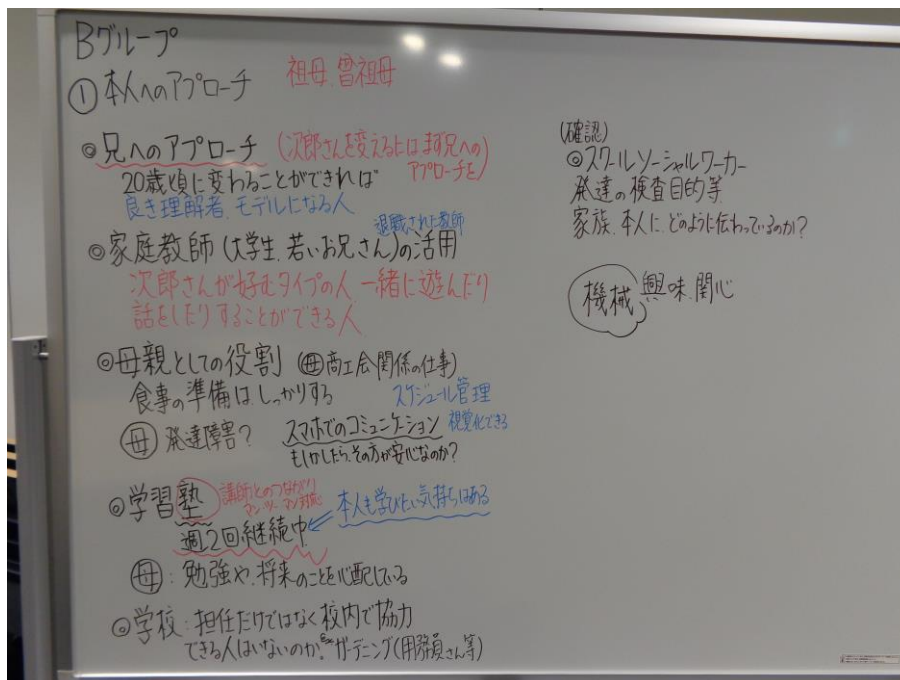 Bグループ
①本人へのアプローチ 祖母.曽祖母
◎兄へのアプローチ (次郎さんを変えるには,まず兄への
アプローチを)
20歳頃に変わることができれば
良き理解者.モデルになる人
退職された教師
◎家庭教師(大学生.若いお兄さん)の活用
次郎さんが好むタイプの人 一緒に遊んだり
話をしたりすることができる人
◎母親としての役割 (母商工会関係の仕事)
食事の準備は.しっかりする スケジュール管理
母 発達障害? スマホでのコミュニケーション 視覚化できる
もしかしたら.その方が安心なのか?
◎学習塾 講師とのつながり
マンツーマン対応
本人も学びたい気持ちはある
週2回継続中
母:勉強や.将来のことを心配している
◎学校:担任だけではなく校内で協力
できる人はいないのか? ガーデニング(用務員さん等)
(確認)
◎スクールソーシャルワーカー
発達の検査目的等
家族.本人に.どのように伝わっているのか?
機械 興味.関心